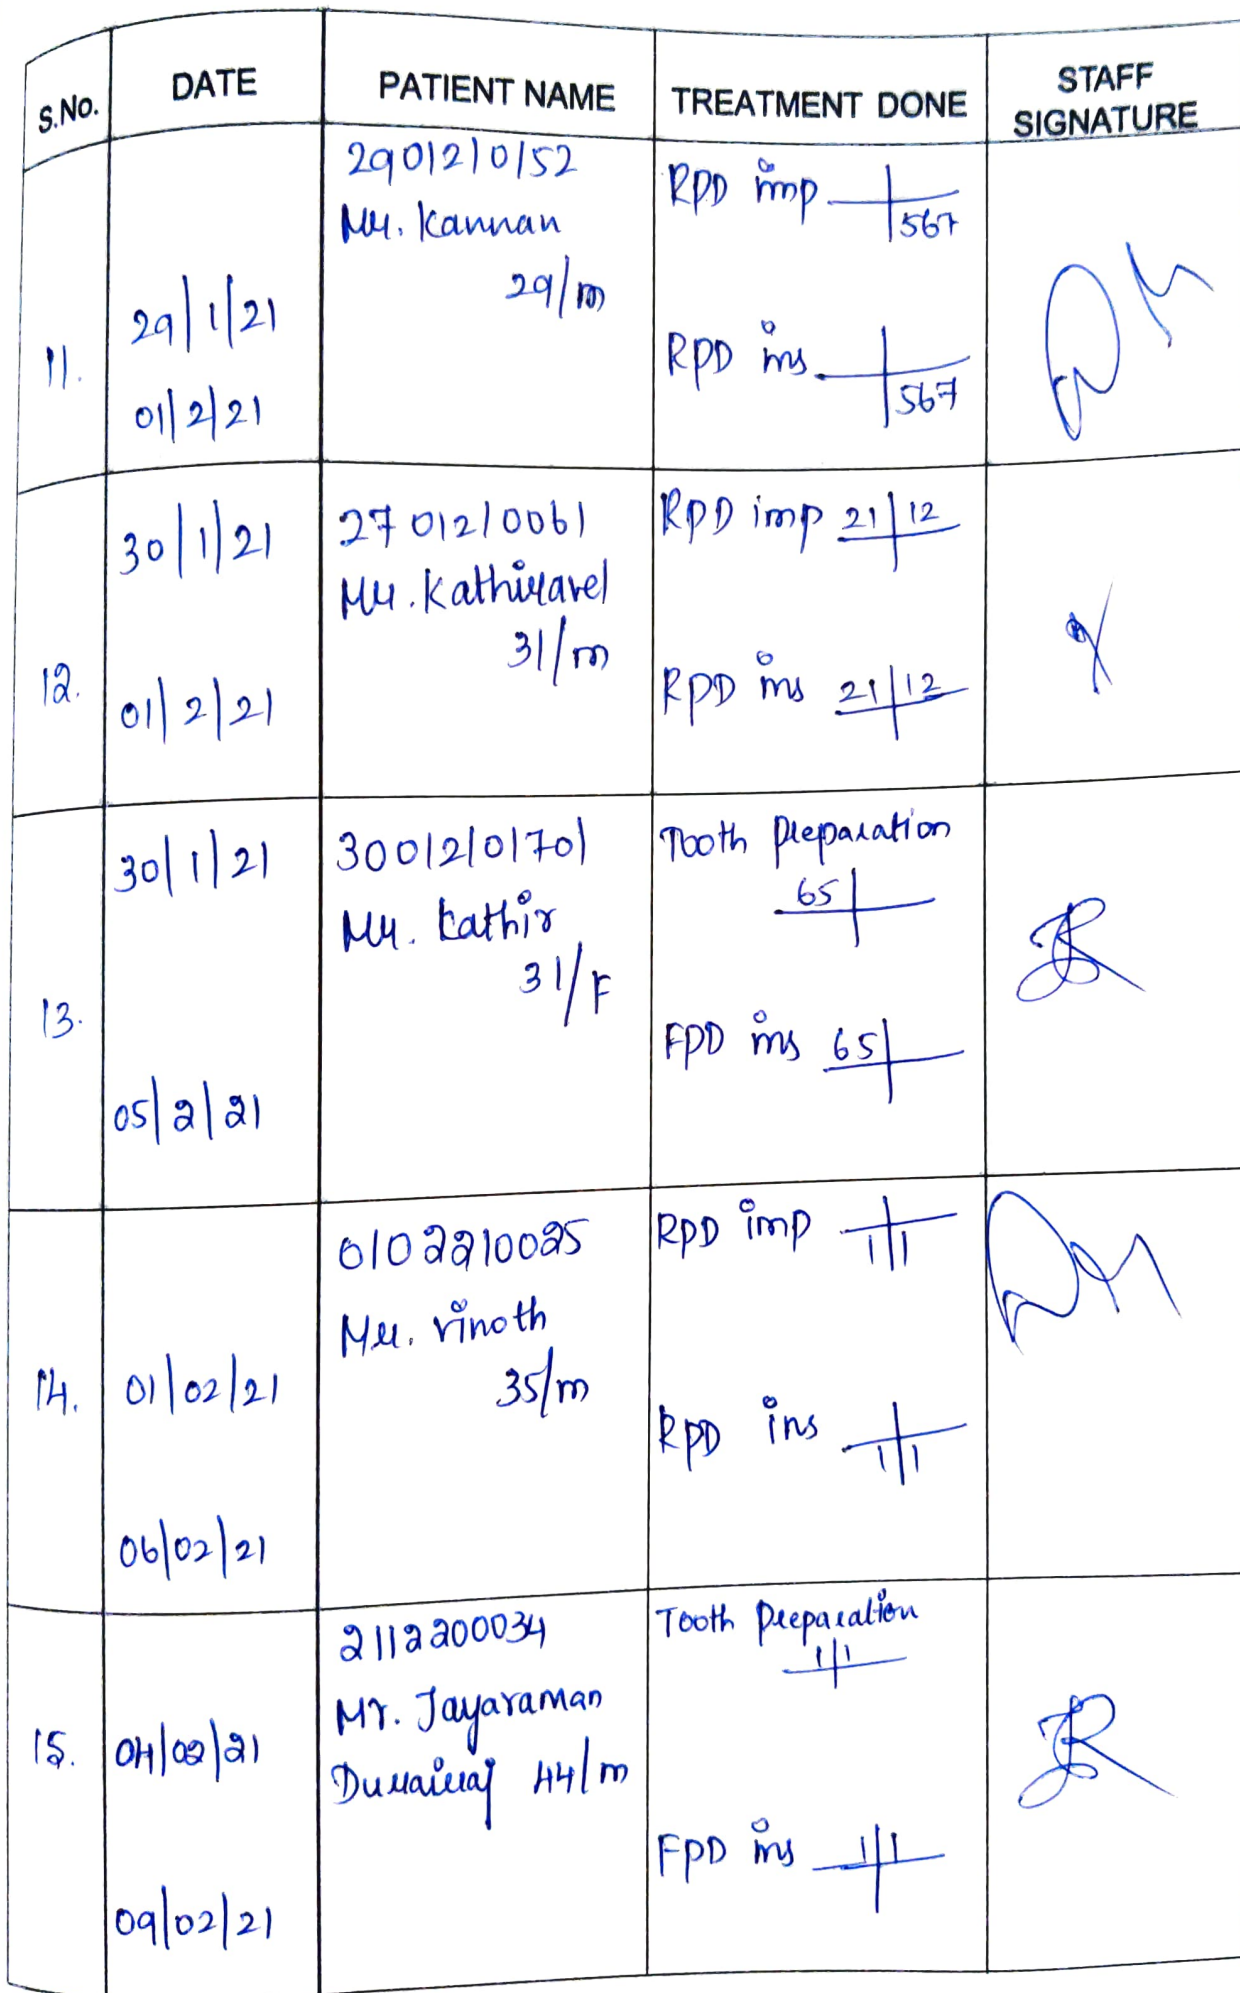 S.No.
DATE
PATIENT NAME
TREATMENT DONE
STAFF
SIGNATURE
11.
29/1/21
01/2/21
2901210152
Mr. Kannan
29/m
RPD imp 567
RPD ins 567
12.
30/1/21
01/2/21
2701210061
Mr. Kathiravel
31/m
RPD imp 21|12
RPD ins 21|12
13.
30/1/21
05/2/21
30012101701
Mr. Kathir
31/F
Tooth Preparation
65
FPD ins 65
14.
01/02/21
06/02/21
0102210025
Mr. Vinoth
35/m
RPD imp 1|1
RPD ins 1|1
15.
04/02/21
09/02/21
2112200034
Mr. Jayaraman
Durairaj 44/m
Tooth Preparation
1|1
FPD ins 1|1